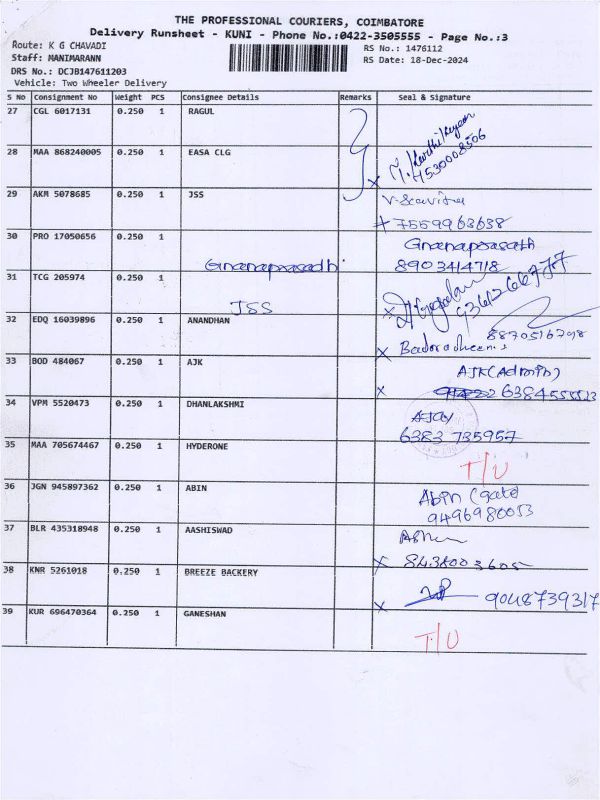 THE PROFESSIONAL COURIERS, COIMBATORE
Delivery Runsheet - KUNI - Phone No.:0422-3505555 - Page No.:3
Route: K G CHAVADI
RS No.: 1476112
Staff: MANIMARANN
RS Date: 18-Dec-2024
DRS No.: DCJB147611203
Vehicle: Two Wheeler Delivery
S No Consignment No Weight PCS Consignee Details Remarks Seal & Signature
27 CGL 6017131 0.250 1 RAGUL
28 MAA 868240005 0.250 1 EASA CLG
29 AKM 5078685 0.250 1 JSS
7559963638
30 PRO 17050656 0.250 1 Gnanaprasadh Gnanaprasath
8903414718
31 TCG 205974 0.250 1 JSS
32 EDQ 16039896 0.250 1 ANANDHAN
8870516798
33 BOD 484067 0.250 1 AJK AJK (Admin)
34 VPM 5520473 0.250 1 DHANLAKSHMI AJAY
6383 735957
35 MAA 705674467 0.250 1 HYDERONE T/U
36 JGN 945897362 0.250 1 ABIN Abin (gate)
9496980053
37 BLR 435318948 0.250 1 AASHISWAD
38 KNR 5261018 0.250 1 BREEZE BACKERY 9048739317
39 KUR 696470364 0.250 1 GANESHAN T/U